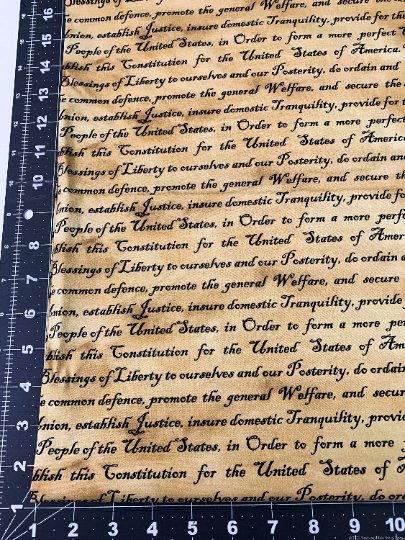 Blessings of Liberty to ourselves and our Posterity, do
common defence, promote the general Welfare, and secure
establish Justice, insure domestic Tranquility, provide for the
People of the United States, in Order to form a more perfect
this Constitution for the United States of America.
Blessings of Liberty to ourselves and our Posterity, do ordain and
common defence, promote the general Welfare, and secure the
establish Justice, insure domestic Tranquility, provide for
People of the United States, in Order to form a more perfect
this Constitution for the United States of America
Blessings of Liberty to ourselves and our Posterity, do ordain and
common defence, promote the general Welfare, and secure
establish Justice, insure domestic Tranquility, provide for
People of the United States, in Order to form a more
this Constitution for the United States of
Blessings of Liberty to ourselves and our Posterity, do ordain
common defence, promote the general Welfare, and secure
establish Justice, insure domestic Tranquility, provide
People of the United States, in Order to form a more
this Constitution for the United States of
Blessings of Liberty to ourselves and our Posterity, do
common defence, promote the general Welfare, and secure
establish Justice, insure domestic Tranquility,
People of the United States, in Order to form a more
this Constitution for the United States of
Blessings of Liberty to ourselves and our Posterity, do
16
15
14
13
12
11
10
9
8
7
6
5
4
3
2
1 2 3 4 5 6 7 8 9 10